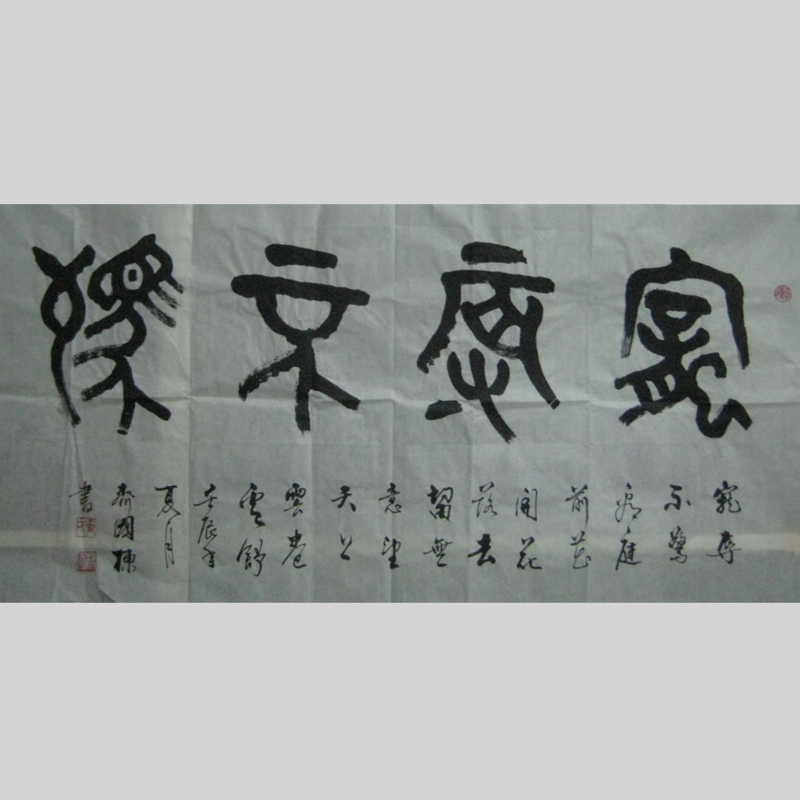 不
寵辱
不驚
看庭
前花
開花
落去
留無
意望
天
雲卷
雲舒
壬辰年
夏月
齊國棟
書